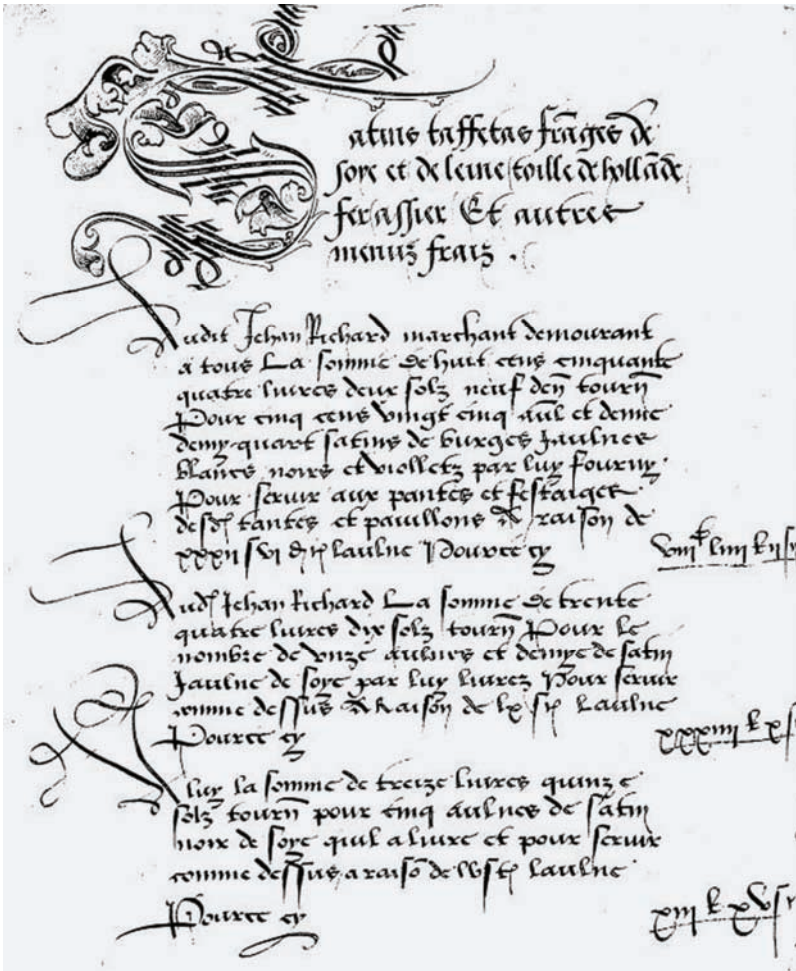 Satins taffetas frāges de
soye et de leine toille de hollāde
fer assier Et autres
menuz fraiz .
Audit Jehan Richard marchant demourant
a tous La somme de huit cens cinquante
quatre livres deux solz neuf den̄ tourn̄
Pour cinq cens vingt cinq aul̄ et demie
demy quart satins de burges Jaulnes
blancs noirs et violletz par luy fourny
Pour servir aux pantes et festaiges
desd tantes et pavillons A raison de
xxxii s vi d laulne Pource cy
viii liiii
Aud Jehan Richard La somme de trente
quatre livres dix solz tourn̄ Pour le
nombre de unze aulnes et demye de satin
Jaulne de soye par luy livrez Pour servir
comme dessus A Raison de lx s laulne
Pource cy
xxxiiii x
A luy la somme de treize livres quinze
solz tourn̄ pour cinq aulnes de satin
noir de soye quil a livre et pour servir
comme dessus a raisō de lv s laulne
Pource cy
xiii xv s